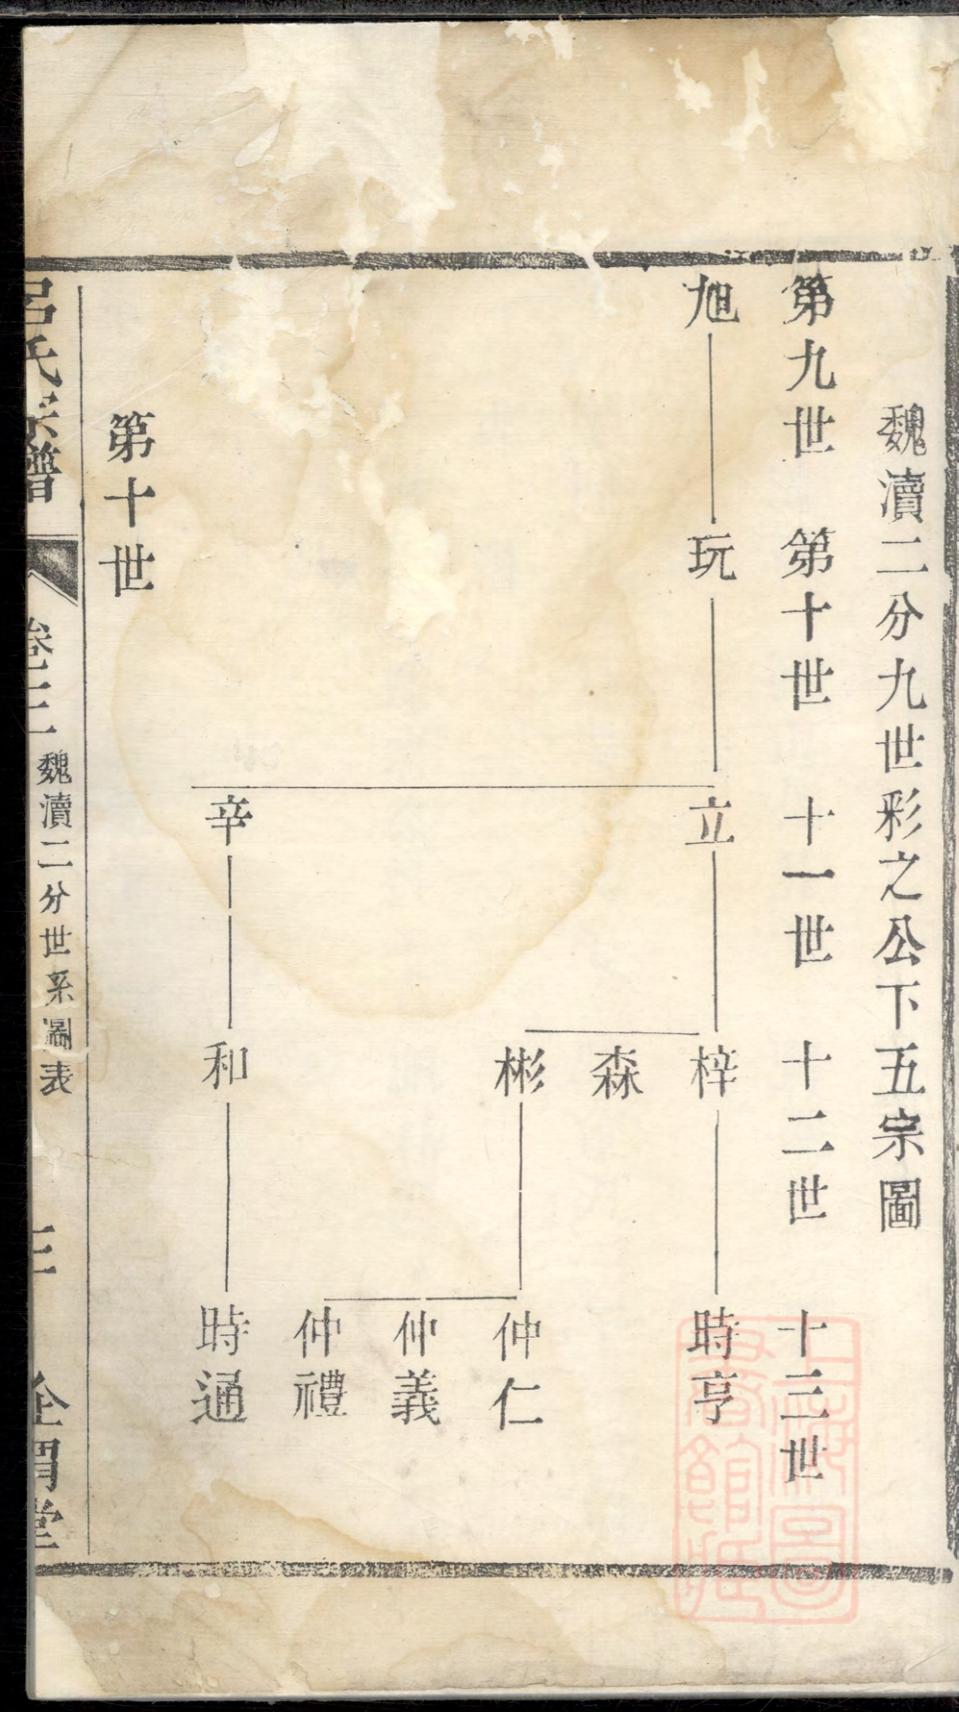 魏瀆二分九世彩之公下五宗圖
第九世 第十世 十一世 十二世 十三世
旭 玩 立 梓 時亨
森
彬 仲仁
仲義
仲禮
辛 和 時通
第十世
呂氏宗譜 卷三 魏瀆二分世系圖表 三 企渭堂
上海圖書館藏